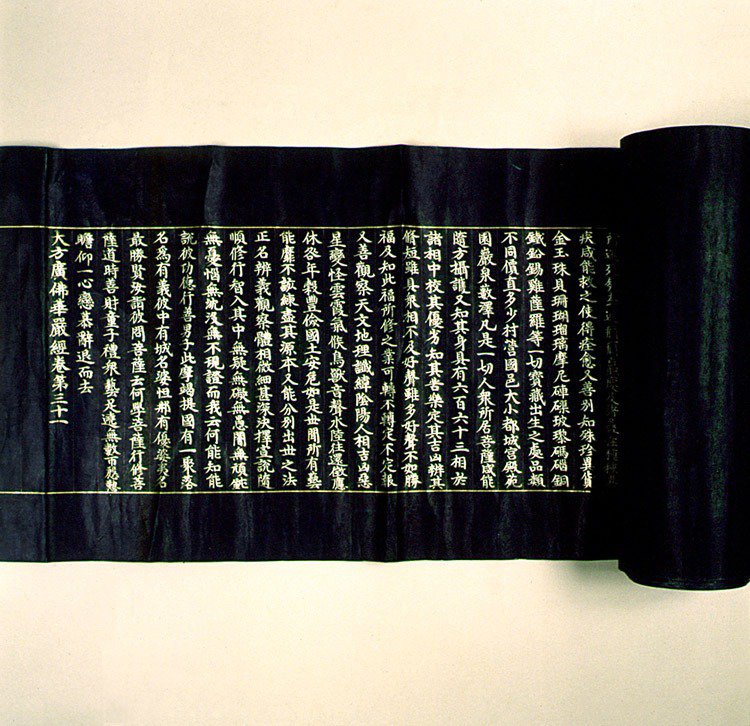 疾咸能救之使得痊愈又善別知殊珍異貨
金玉珠貝珊瑚瑠璃摩尼硨磲玻瓈碼碯銅
鐵鈆錫雞薩羅等一切寶藏出生之處品類
不同價直多少村營國邑大小都城宮殿苑
園巖泉藪澤凡是一切人衆所居菩薩咸能
隨方攝護又知其身具有六百六十三相於
諸相中挍其優劣知其苦樂定其吉凶辨其
脩短雖具衆相不及好聲雖多好聲不如勝
福及知此福所修之業可轉不轉定不定報
又善觀察天文地理讖緯陰陽人相吉凶惡
星變恠雲霞氣候鳥獸音聲水陸往還徵應
休咎年穀豐儉國土安危如是世間所有藝
能靡不該練盡其源本又能分別出世之法
正名辨義觀察體相微細甚深決擇宣說隨
順修行智入其中無疑無礙無愚闇無頑鈍
無憂惱無沉沒無不現證而我云何能知能
說彼功德行善男子此摩竭提國有一聚落
名為有義彼中有城名婆怛那有優婆夷名
最勝賢汝詣彼問菩薩云何學菩薩行修菩
薩道時善財童子禮衆藝足遶無數帀慇懃
瞻仰一心戀慕辭退而去
大方廣佛華嚴經卷第三十一